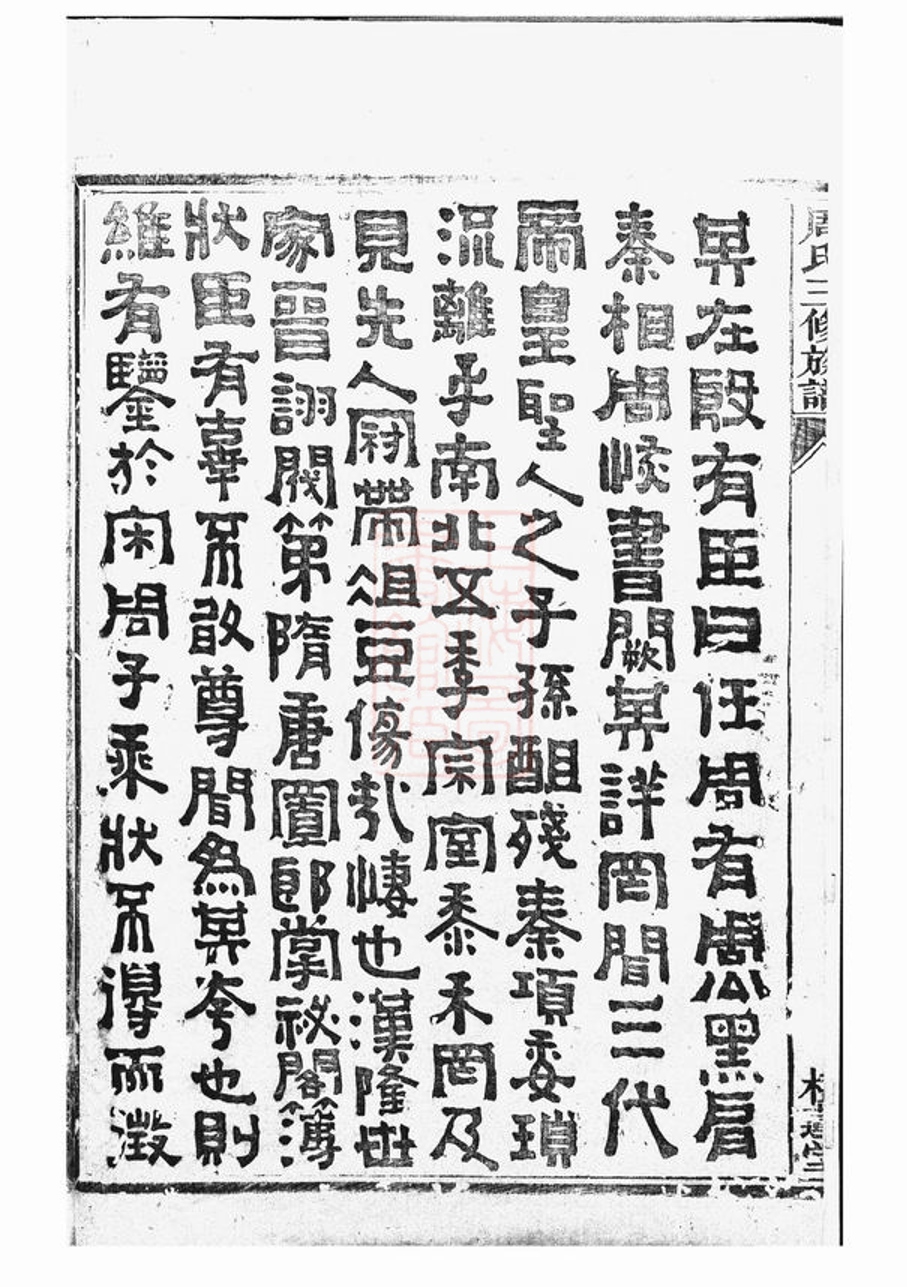 周氏三修族譜
其在殷有臣曰任周有周公黑肩
秦相周㷇書闕其詳罔聞三代
帝皇聖人之子孫殂殘秦項委瑣
流離乎南北五季宗室黍禾罔及
見先人冠帶俎豆傷哉悽也漢隆世
家晉詡閥第隋唐置郎掌祕閣簿
狀臣有辜不敢尊聞為其夸也則
維有鑒於宋周子乘狀不得而徵